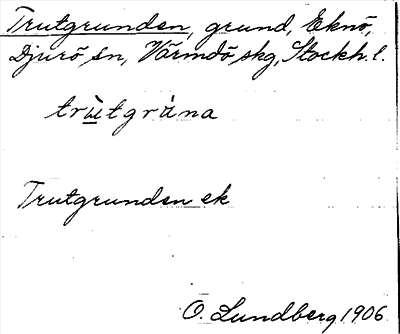 Trutgrunden, grund, Eknö,
Djurö sn, Värmdö skg, Stockh. l.
trùtgràna
Trutgrunden ek
O. Lundberg 1906